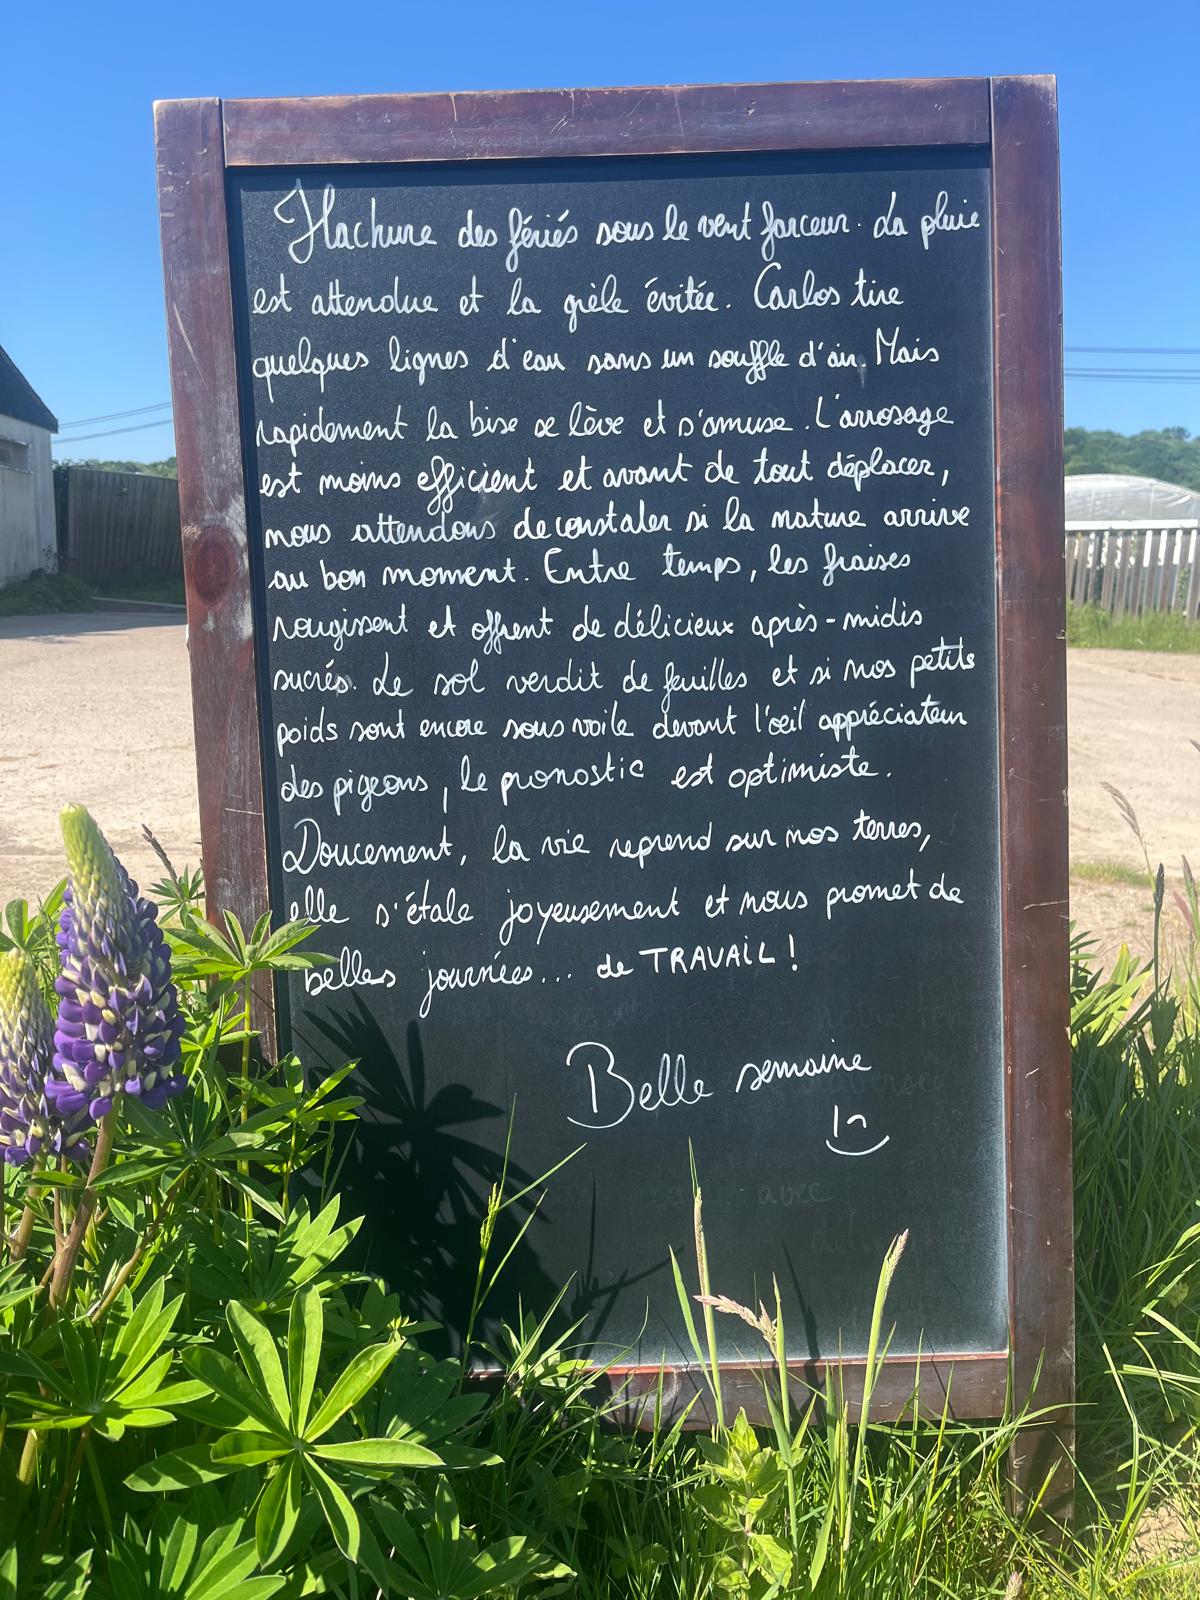 Hachure des fériés sous le vent farceur. La pluie
est attendue et la grêle évitée. Carlos tire
quelques lignes d'eau sans un souffle d'air. Mais
rapidement la bise se lève et s'amuse. L'arrosage
est moins efficient et avant de tout déplacer,
nous attendons de constater si la nature arrive
au bon moment. Entre temps, les fraises
rougissent et offrent de délicieux après-midis
sucrés. Le sol verdit de feuilles et si nos petits
poids sont encore sous voile devant l'œil appréciateur
des pigeons, le pronostic est optimiste.
Doucement, la vie reprend sur nos terres,
elle s'étale joyeusement et nous promet de
belles journées... de TRAVAIL !
Belle semaine